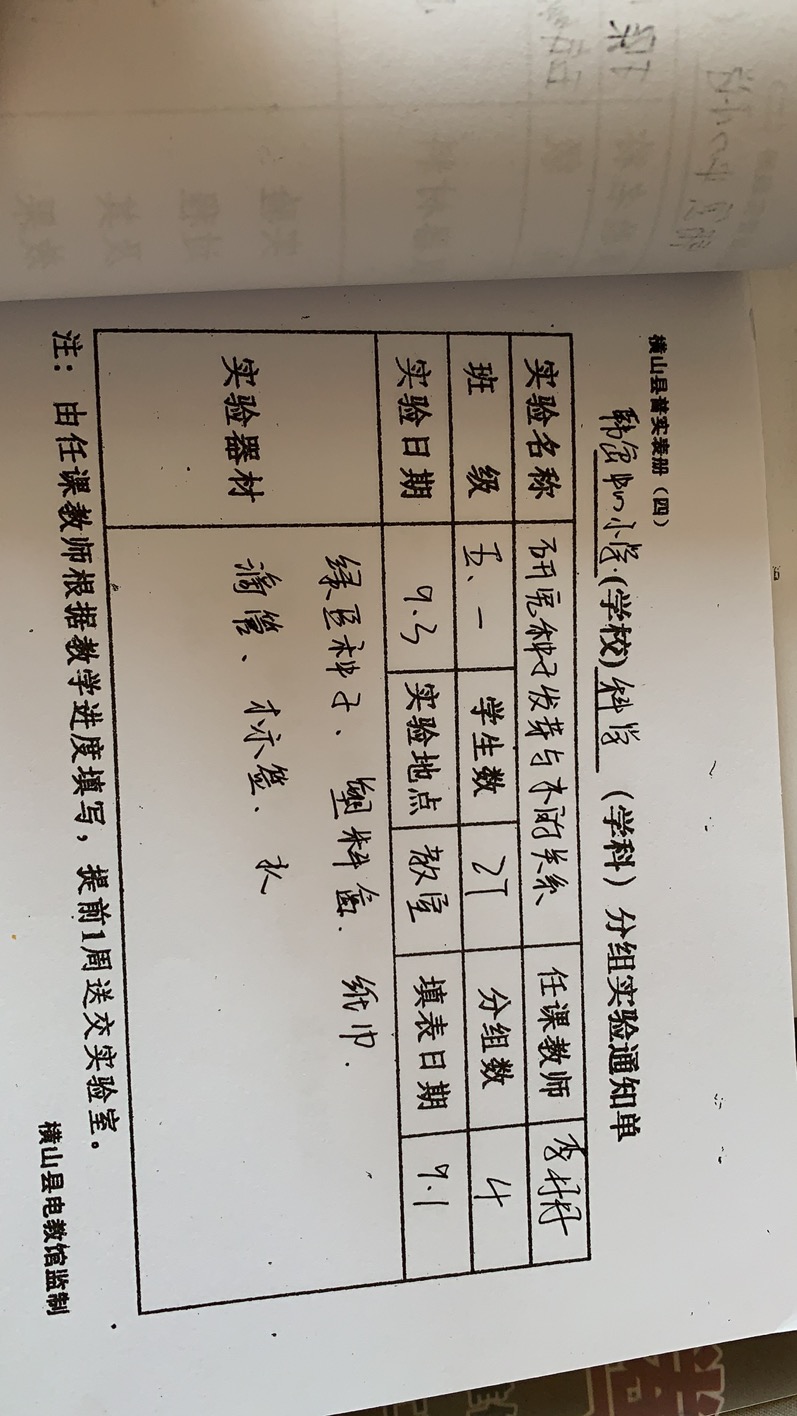 横山县普实表册（四）
小学(学校)科学（学科）分组实验通知单
实验名称 研究种子发芽与水的关系 任课教师 李
班 级 五、一 学生数 27 分组数 4
实验日期 9.3 实验地点 教室 填表日期 9.1
实验器材 绿豆种子、塑料盒. 纸巾.
滴管、标签、水
注：由任课教师根据教学进度填写，提前1周送交实验室。
横山县电教馆监制